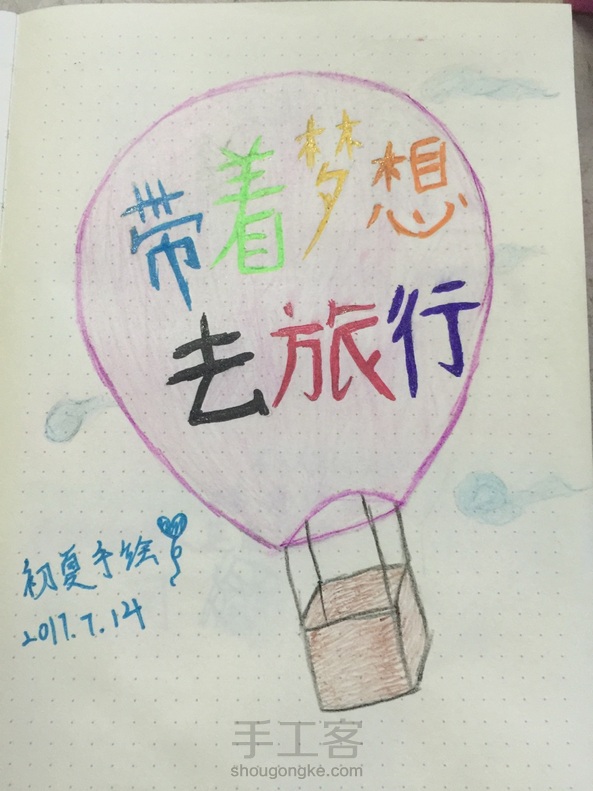 带着梦想
去旅行
初夏手绘
2017.7.14
手工客
shougongke.com